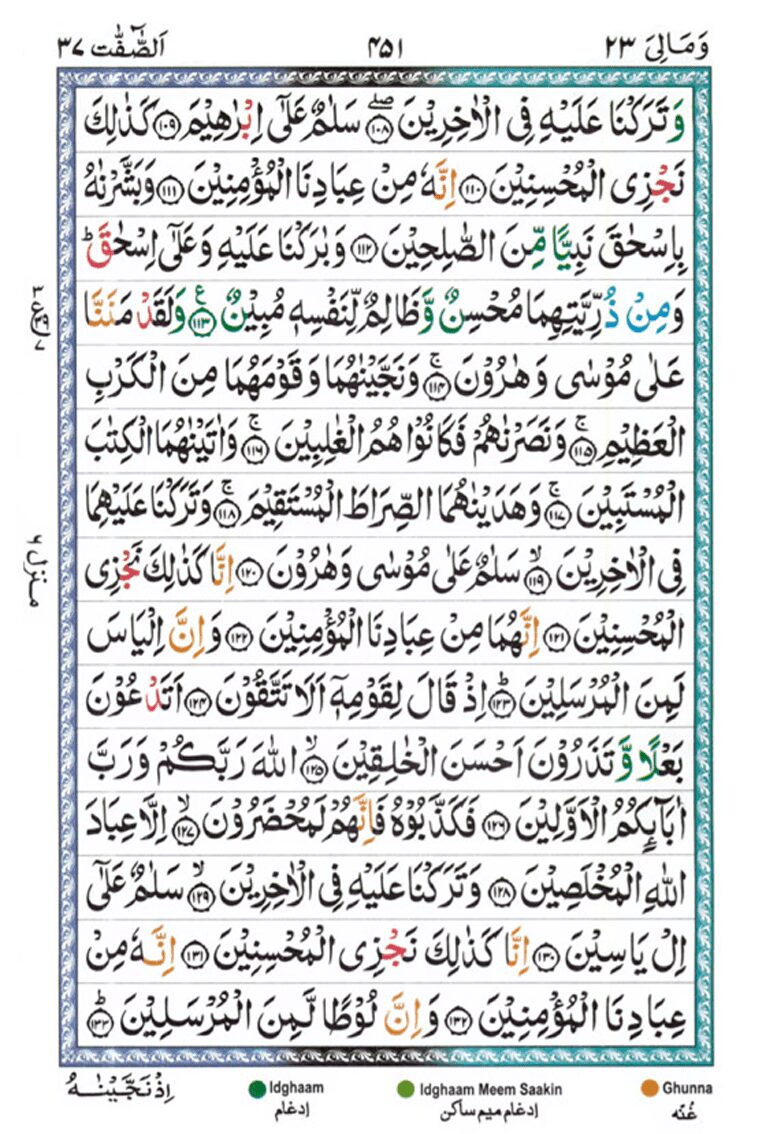 وَمَالِیَ ٢٣ ۴۵۱ اَلصّٰٓفّٰت ٣٧
وَتَرَكْنَا عَلَيْهِ فِی الْاٰخِرِيْنَ ۖ‏﴿۱۰۸﴾ سَلٰمٌ عَلٰٓى اِبْرٰهِيْمَ ﴿۱۰۹﴾ كَذٰلِكَ
نَجْزِی الْمُحْسِنِيْنَ ﴿۱۱۰﴾ اِنَّهٗ مِنْ عِبَادِنَا الْمُؤْمِنِيْنَ ﴿۱۱۱﴾ وَبَشَّرْنٰهُ
بِاِسْحٰقَ نَبِيًّا مِّنَ الصّٰلِحِيْنَ ﴿۱۱۲﴾ وَبٰرَكْنَا عَلَيْهِ وَعَلٰٓى اِسْحٰقَؕ
وَمِنْ ذُرِّيَّتِهِمَا مُحْسِنٌ وَّظَالِمٌ لِّنَفْسِهٖ مُبِيْنٌ ﴿۱۱۳﴾ۧ وَلَقَدْ مَنَنَّا
عَلٰى مُوْسٰى وَهٰرُوْنَ ۚ‏﴿۱۱۴﴾ وَنَجَّيْنٰهُمَا وَقَوْمَهُمَا مِنَ الْكَرْبِ
الْعَظِيْمِ ۚ‏﴿۱۱۵﴾ وَنَصَرْنٰهُمْ فَكَانُوْا هُمُ الْغٰلِبِيْنَ ۚ‏﴿۱۱۶﴾ وَاٰتَيْنٰهُمَا الْكِتٰبَ
الْمُسْتَبِيْنَ ۚ‏﴿۱۱۷﴾ وَهَدَيْنٰهُمَا الصِّرَاطَ الْمُسْتَقِيْمَ ۚ‏﴿۱۱۸﴾ وَتَرَكْنَا عَلَيْهِمَا
فِی الْاٰخِرِيْنَ ۙ‏﴿۱۱۹﴾ سَلٰمٌ عَلٰى مُوْسٰى وَهٰرُوْنَ ﴿۱۲۰﴾ اِنَّا كَذٰلِكَ نَجْزِی
الْمُحْسِنِيْنَ ﴿۱۲۱﴾ اِنَّهُمَا مِنْ عِبَادِنَا الْمُؤْمِنِيْنَ ﴿۱۲۲﴾ وَاِنَّ اِلْيَاسَ
لَمِنَ الْمُرْسَلِيْنَ ؕ‏﴿۱۲۳﴾ اِذْ قَالَ لِقَوْمِهٖٓ اَلَا تَتَّقُوْنَ ﴿۱۲۴﴾ اَتَدْعُوْنَ
بَعْلًا وَّتَذَرُوْنَ اَحْسَنَ الْخٰلِقِيْنَ ۙ‏﴿۱۲۵﴾ اللّٰهَ رَبَّكُمْ وَرَبَّ
اٰبَآئِكُمُ الْاَوَّلِيْنَ ﴿۱۲۶﴾ فَكَذَّبُوْهُ فَاِنَّهُمْ لَمُحْضَرُوْنَ ۙ‏﴿۱۲۷﴾ اِلَّا عِبَادَ
اللّٰهِ الْمُخْلَصِيْنَ ﴿۱۲۸﴾ وَتَرَكْنَا عَلَيْهِ فِی الْاٰخِرِيْنَ ۙ‏﴿۱۲۹﴾ سَلٰمٌ عَلٰٓى
اِلْ يَاسِيْنَ ﴿۱۳۰﴾ اِنَّا كَذٰلِكَ نَجْزِی الْمُحْسِنِيْنَ ﴿۱۳۱﴾ اِنَّهٗ مِنْ
عِبَادِنَا الْمُؤْمِنِيْنَ ﴿۱۳۲﴾ وَاِنَّ لُوْطًا لَّمِنَ الْمُرْسَلِيْنَ ؕ‏﴿۱۳۳﴾
منزل ۶
اِذْ نَجَّيْنٰهُ
Idghaam
ادغام
Idghaam Meem Saakin
ادغام میم ساکن
Ghunna
غُنّه